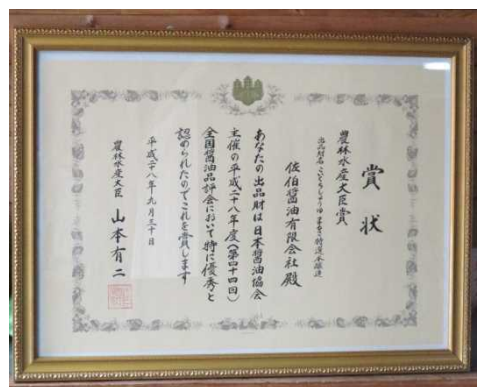 賞状
農林水産大臣賞
出品財名 こいくちしょうゆ 特選 本醸造
佐伯醤油有限会社 殿
あなたの出品財は日本醤油協会
主催の平成二十八年度(第四十四回)
全国醤油品評会において特に優秀と
認められたのでこれを賞します
平成二十八年九月三十日
農林水産大臣 山本有二